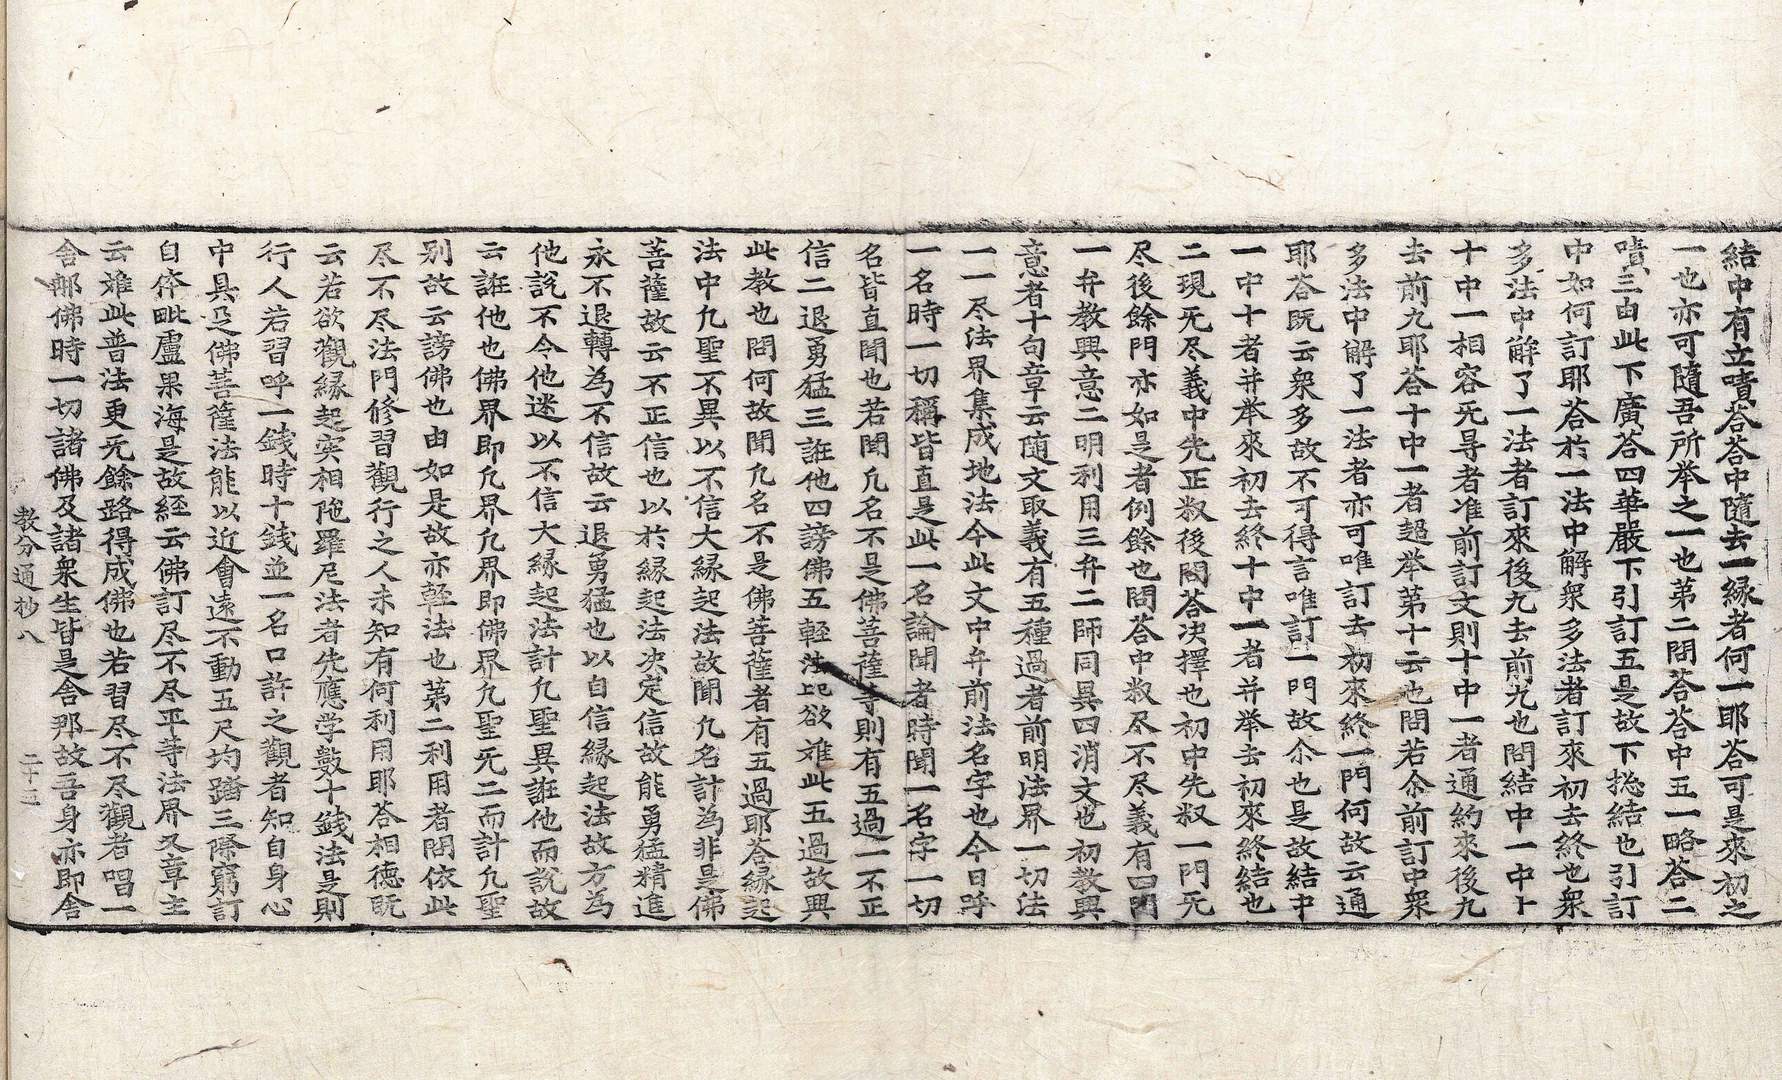 結中有立嘖荅荅中隨去一縁者何一耶荅可是來初之
一也亦可隨吾所举之一也第二問荅荅中五一略荅二
嘖三由此下廣荅四華嚴下引訂五是故下揔結也引訂
中如何訂耶荅於一法中解衆多法者訂來初去終也衆
多法中解了一法者訂來後九去前九也問結中一中卜
十中一相容旡㝵者准前訂文則十中一者通約來後九
去前九耶荅十中一者超举第十云也問若尒前訂中衆
多法中解了一法者亦可唯訂去初來終一門何故云通
耶荅既云衆多故不可得言唯訂一門故尒也是故結中
一中十者并举來初去終十中一者并举去初來終結也
二現旡尽義中先正叙後問荅决擇也初中先叙一門旡
尽後餘門亦如是者例餘也問荅中叙尽不尽義有四門
一弁教興意二明利用三弁二師同異四消文也初教興
意者十句章云随文取義有五種過者前明法界一切法
一一尽法界集成地法今此文中弁前法名字也今日呼
一名時一切稱皆直是此一名論聞者時聞一名字一切
名皆直聞也若聞九名不是佛菩薩等則有五過一不正
信二退勇猛三誑他四謗佛五軽法 欲难此五過故興
此教也問何故聞凡名不是佛菩薩者有五過耶荅縁起
法中凡聖不異以不信大縁起法故聞凡名計為非是佛
菩薩故云不正信也以於縁起法决定信故能勇猛精進
永不退轉為不信故云退勇猛也以自信縁起法故方為
他說不令他迷以不信大縁起法計凡聖異誑他而說故
云誑他也佛界即凡界凡界即佛界凡聖旡二而計凡聖
别故云謗佛也由如是故亦軽法也第二利用者問依此
尽不尽法門修習觀行之人未知有何利用耶荅相德既
云若欲觀縁起实相陁羅尼法者先應学數十錢法是則
行人若習呼一錢時十錢並一名口許之觀者知自身心
中具足佛菩薩法能以近會遠不動五尺均踏三際窮訂
自体毗盧果海是故経云佛訂尽不尽平等法界又章主
云难此普法更旡餘路得成佛也若習尽不尽觀者唱一
舍那佛時一切諸佛及諸衆生皆是舍那故吾身亦即舍
教分通抄八 二十三